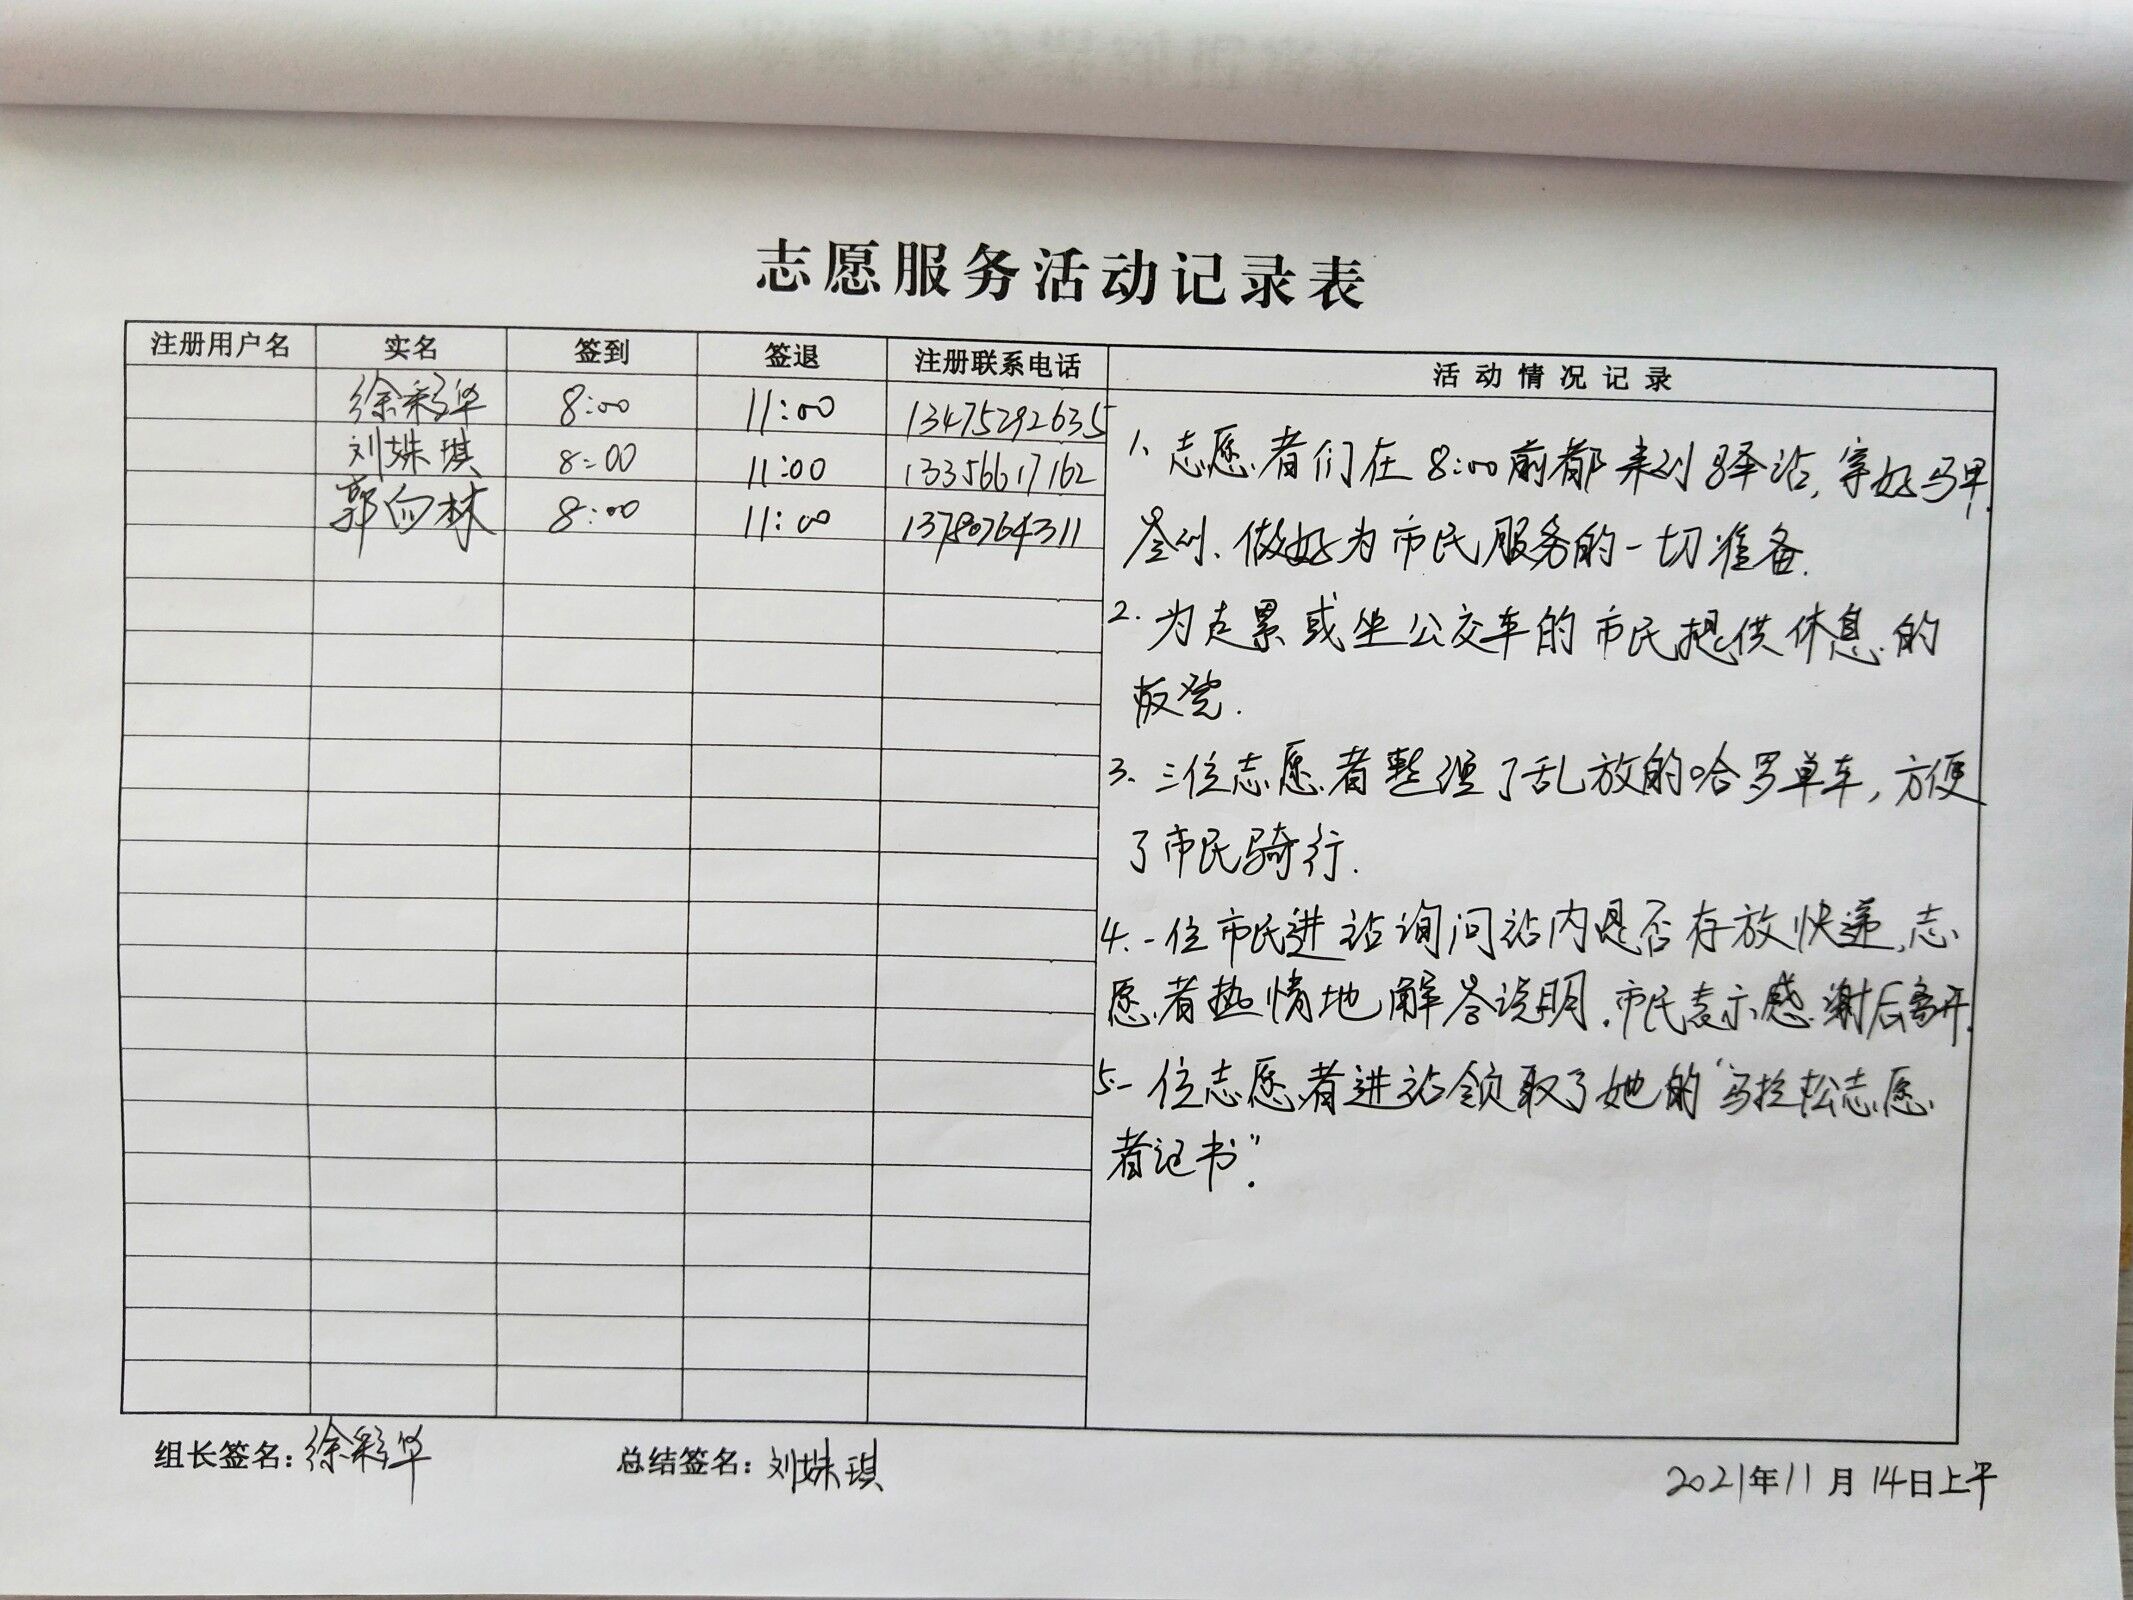 志愿服务活动记录表
注册用户名 实名 签到 签退 注册联系电话 活动情况记录
徐彩华 8:00 11:00 13475292635
刘姝琪 8:00 11:00 13356617162
郭向林 8:00 11:00 13780764311
1、志愿者们在8:00前都来到驿站,穿好马甲.
签到、做好为市民服务的一切准备.
2.为走累或坐公交车的市民提供休息的
板凳.
3.三位志愿者整理了乱放的哈罗单车,方便
了市民骑行.
4.一位市民进站询问站内是否存放快递,志
愿者热情地解答说明.市民表示感谢后离开.
5.一位志愿者进站领取了她的“马拉松志愿
者证书”.
组长签名:徐彩华 总结签名:刘姝琪
2021年11月14日上午